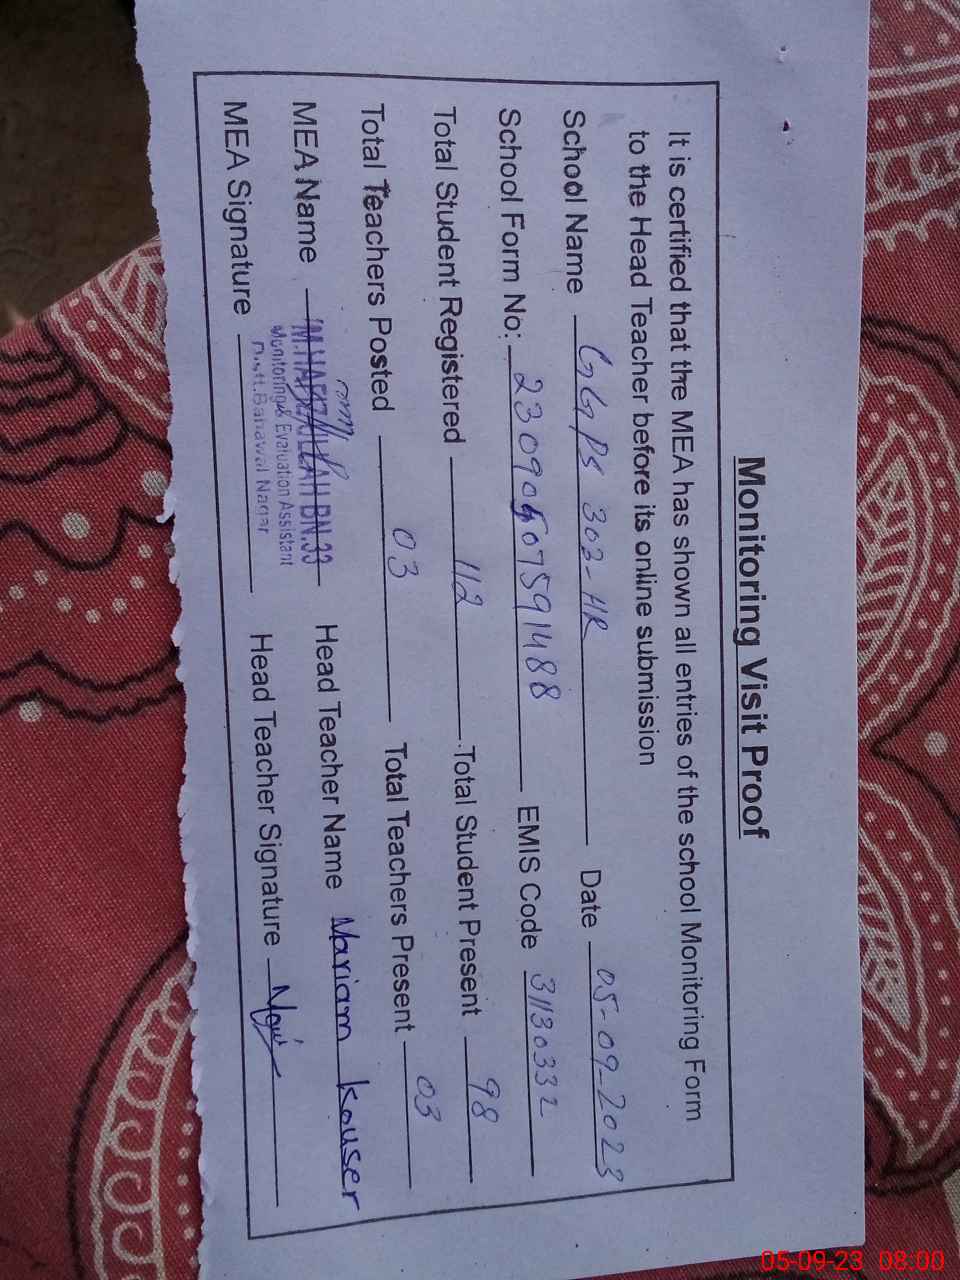 Monitoring Visit Proof
It is certified that the MEA has shown all entries of the school Monitoring Form
to the Head Teacher before its online submission
School Name GGPS 302-HR Date 05-09-2023
School Form No: 23090507591488 EMIS Code 31130332
Total Student Registered 112 Total Student Present 98
Total Teachers Posted 03 Total Teachers Present 03
MEA Name BN.33 Head Teacher Name Mariam Kouser
Monitoring & Evaluation Assistant
Distt. Bahawal Nagar
MEA Signature Head Teacher Signature
05-09-23 08:00